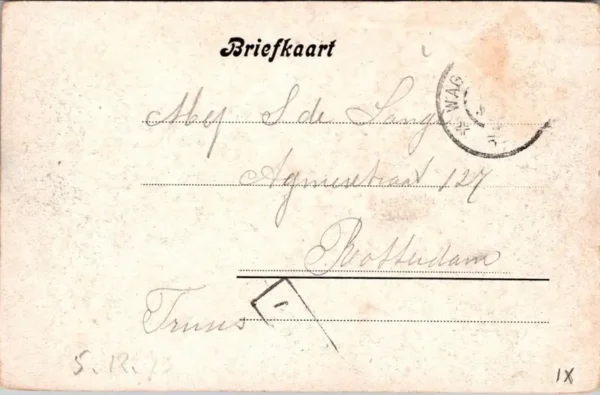 Briefkaart
WAG
Mej S de Lange
Agniesestraat 127
Rotterdam
Truus
5.12.
IX